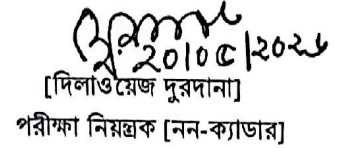 ২০|০৫|২০২৬
[দিলাওয়েজ দুরদানা]
পরীক্ষা নিয়ন্ত্রক [নন-ক্যাডার]